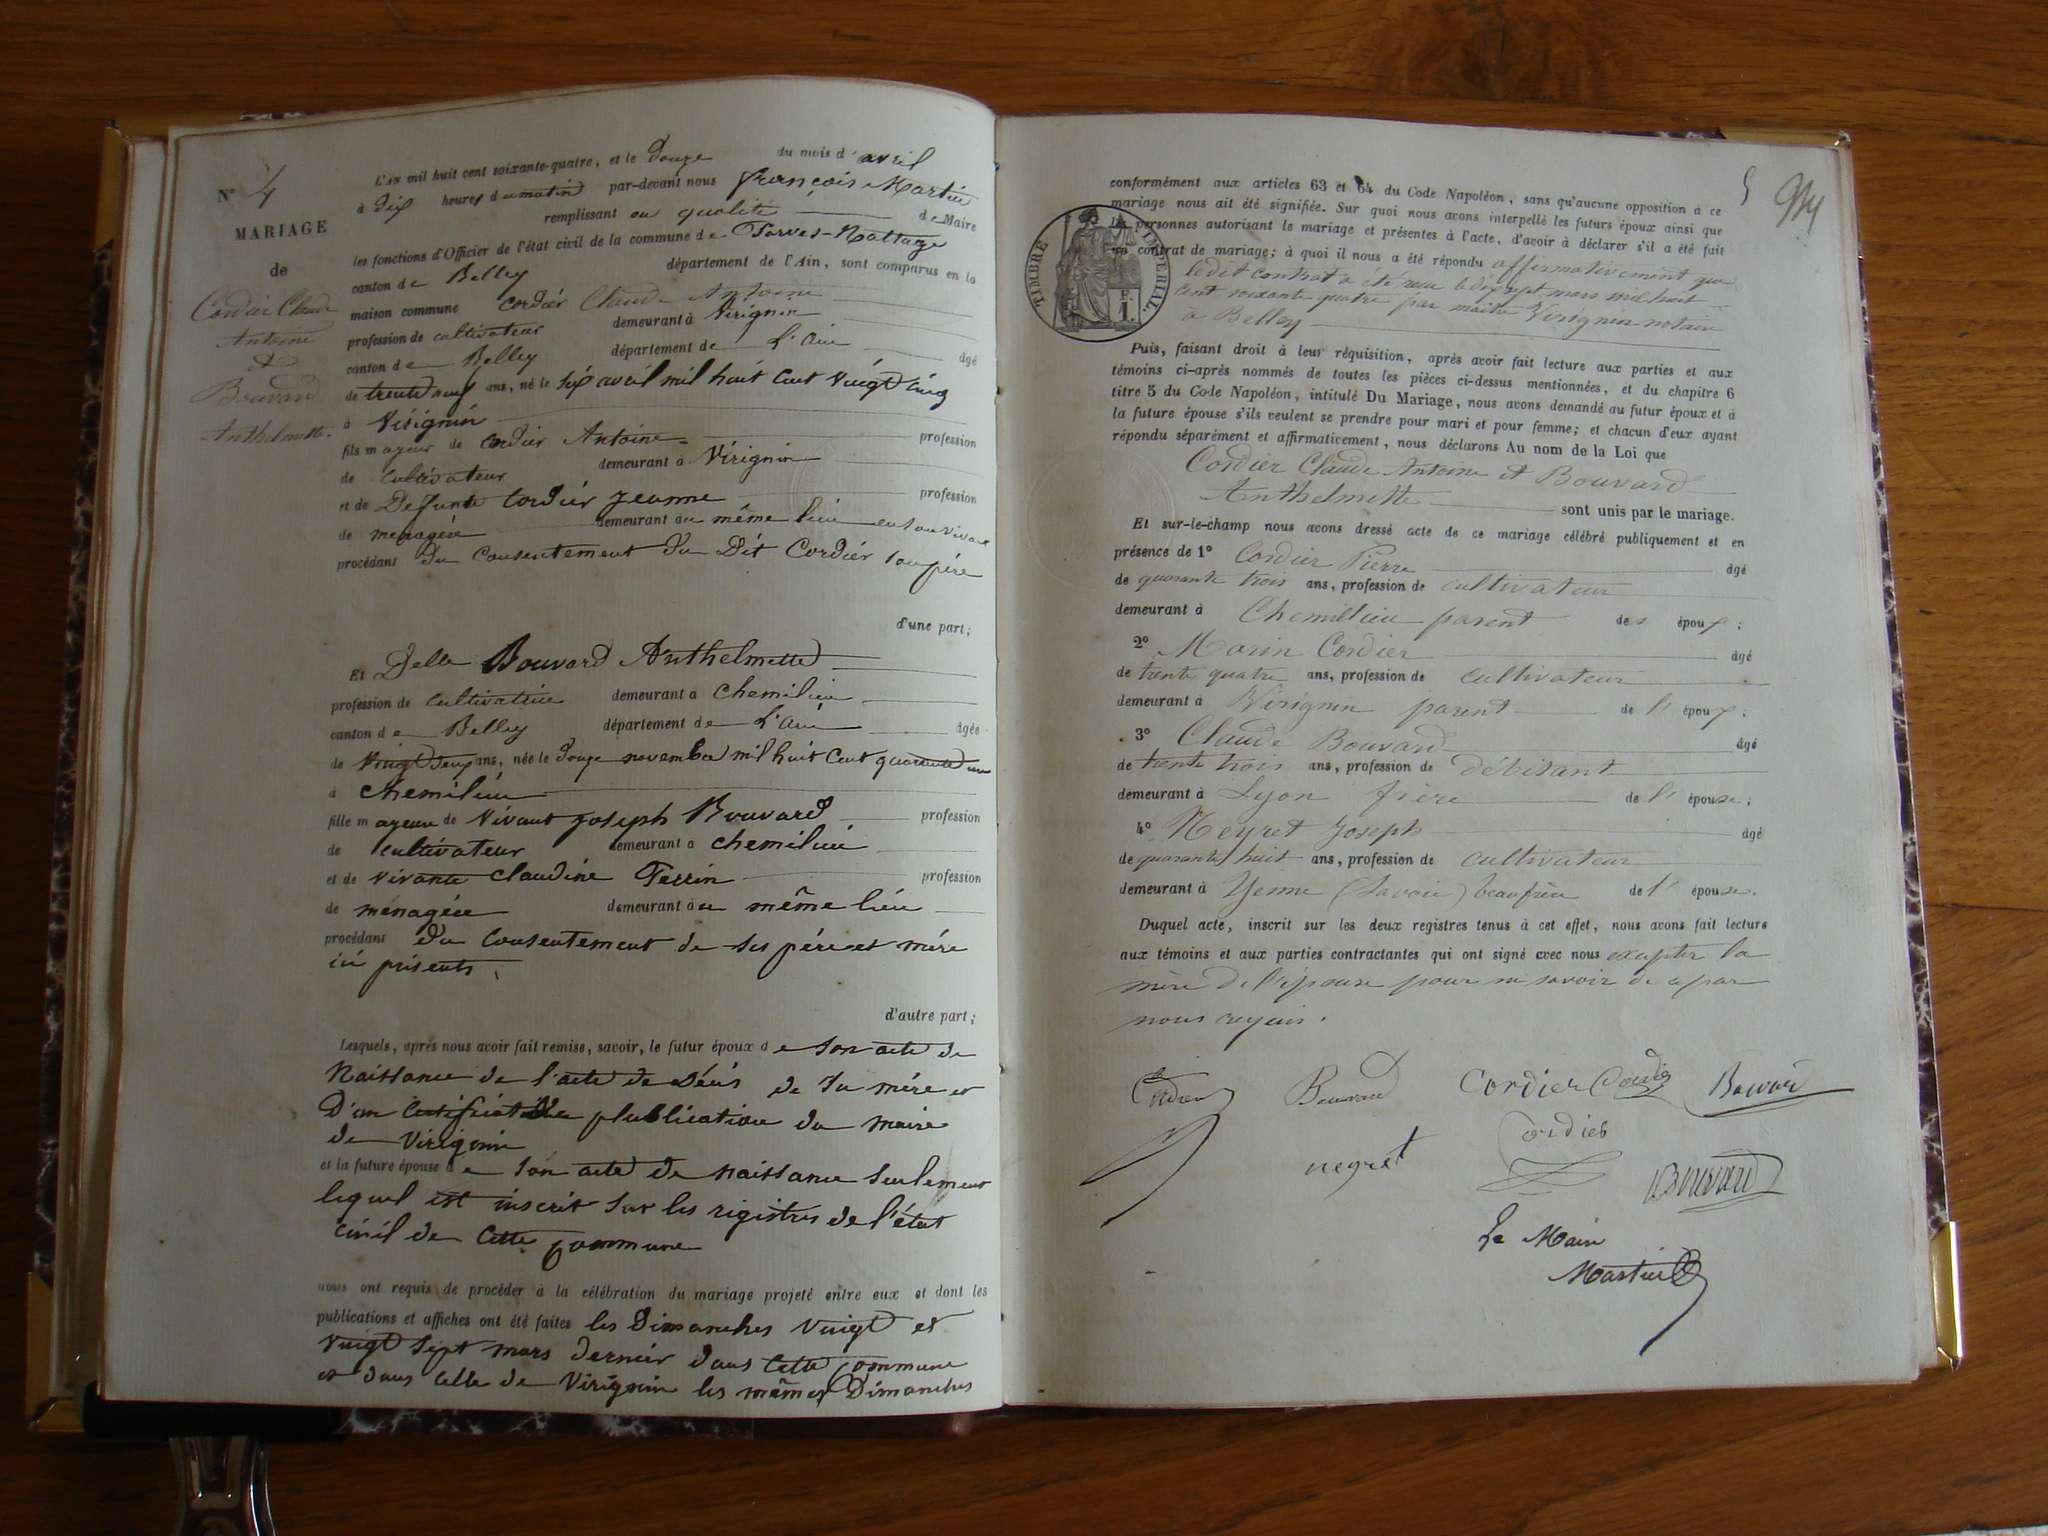 N° 4
MARIAGE
de
Cordier Claude
Antoine
&
Bouvard
Anthelmette.
L'AN mil huit cent soixante-quatre, et le Douze du mois d'avril
à dix heures du matin par-devant nous françois Martin
remplissant en qualité de Maire
les fonctions d'Officier de l'état civil de la commune de Parves-Nattage
canton de Belley département de l'Ain, sont comparus en la
maison commune Cordiér Claude Antoine
profession de cultivateur demeurant à Virignin
canton de Belley département de L'Ain âgé
de trente neuf ans, né le six avril mil huit cent vingt cinq
à Virignin
fils mageur de Cordiér Antoine profession
de Cultivateur demeurant à Virignin
et de Defunte Cordiér Jeanne profession
de menagère demeurant au même lieu en son vivant
procédant du Consentement du Dit Cordiér son père
d'une part;
Et Delle Bouvard Anthelmette
profession de cultivatrice demeurant à chemilieu
canton de Belley département de L'Ain âgée
de Vingt deux ans, née le douze novembre mil huit Cent quarante un
à chemilieu
fille mageure de Vivant Joseph Bouvard profession
de cultivateur demeurant à chemilieu
et de vivante Claudine Perrin profession
de ménagère demeurant au même lieu
procédant du Consentement de ses père et mère
ici présents,
d'autre part;
Lesquels, après nous avoir fait remise, savoir, le futur époux de son acte de
Naissance de l'acte de Décès de sa mère et
D'un Certificat de plublication du maire
de Virignin
et la future épouse de son acte de naissance seulement
lequel est inscrit sur les registres de l'état
civil de Cette Commune
nous ont requis de procéder à la célébration du mariage projeté entre eux et dont les
publications et affiches ont été faites les Dimanches vingt et
vingt sept mars dernier dans Cette Commune
et dans celle de Virignin les mêmes Dimanches
5
conformément aux articles 63 et 64 du Code Napoléon, sans qu'aucune opposition à ce
mariage nous ait été signifiée. Sur quoi nous avons interpellé les futurs époux ainsi que
personnes autorisant le mariage et présentes à l'acte, d'avoir à déclarer s'il a été fait
contrat de mariage; à quoi il nous a été répondu affirmativement que
ledit contrat a été reçu le dix sept mars mil huit
cent soixante quatre par maître Virignin notaire
à Belley
TIMBRE IMPÉRIAL
1 F.
Puis, faisant droit à leur réquisition, après avoir fait lecture aux parties et aux
témoins ci-après nommés de toutes les pièces ci-dessus mentionnées, et du chapitre 6
titre 5 du Code Napoléon, intitulé Du Mariage, nous avons demandé au futur époux et à
la future épouse s'ils veulent se prendre pour mari et pour femme; et chacun d'eux ayant
répondu séparément et affirmativement, nous déclarons Au nom de la Loi que
Cordier Claude Antoine et Bouvard
Anthelmette sont unis par le mariage.
Et sur-le-champ nous avons dressé acte de ce mariage célébré publiquement et en
présence de 1° Cordier Pierre âgé
de quarante trois ans, profession de cultivateur
demeurant à Chemillieu parent des époux;
2° Marin Cordier âgé
de trente quatre ans, profession de cultivateur
demeurant à Virignin parent de l'époux;
3° Claude Bouvard âgé
de trente trois ans, profession de débitant
demeurant à Lyon frère de l'épouse;
4° Neyret Joseph âgé
de quarante huit ans, profession de cultivateur
demeurant à Yenne (Savoie) beaufrère de l'épouse.
Duquel acte, inscrit sur les deux registres tenus à cet effet, nous avons fait lecture
aux témoins et aux parties contractantes qui ont signé avec nous excepter la
mère de l'épouse pour ne savoir de a par
nous requis.
Cordier Bouvard Cordier Cordier Bouvard
neyret Cordier Bouvard
Le Maire
Martin